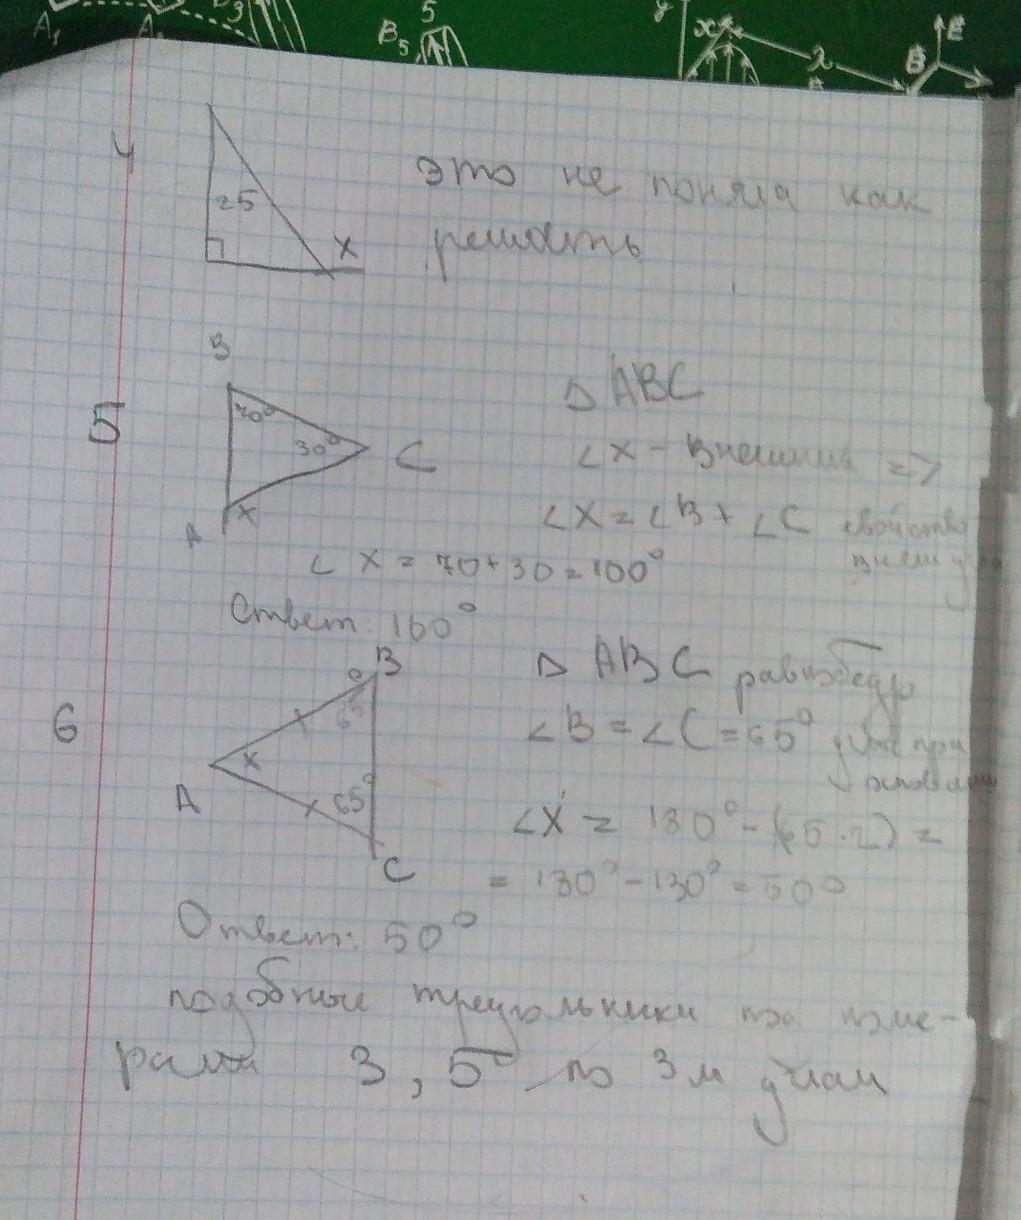 A₁
B₅ 5
x λ B E
4
25 x
это не поняла как
решать
5
B
70° 30° C
A x
Δ ABC
∠X - внешний =>
∠X = ∠B + ∠C свойство
внеш угла
∠ X = 70+30=100°
Ответ: 100°
6
B
65°
A x
65°
C
Δ ABC равнобедр
∠B = ∠C = 65° углы при
основании
∠X = 180° - (65·2) =
= 180° - 130° = 50°
Ответ: 50°
подобные треугольники под номе-
рами 3, 5 по 3м углам